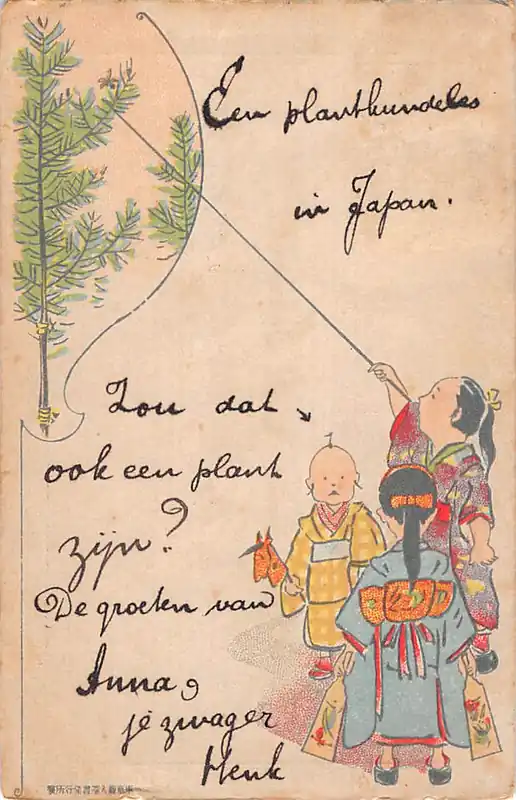 Een plantkundeles
in Japan.
Zou dat
ook een plant
zijn?
De groeten van
Anna,
je zwager
Henk